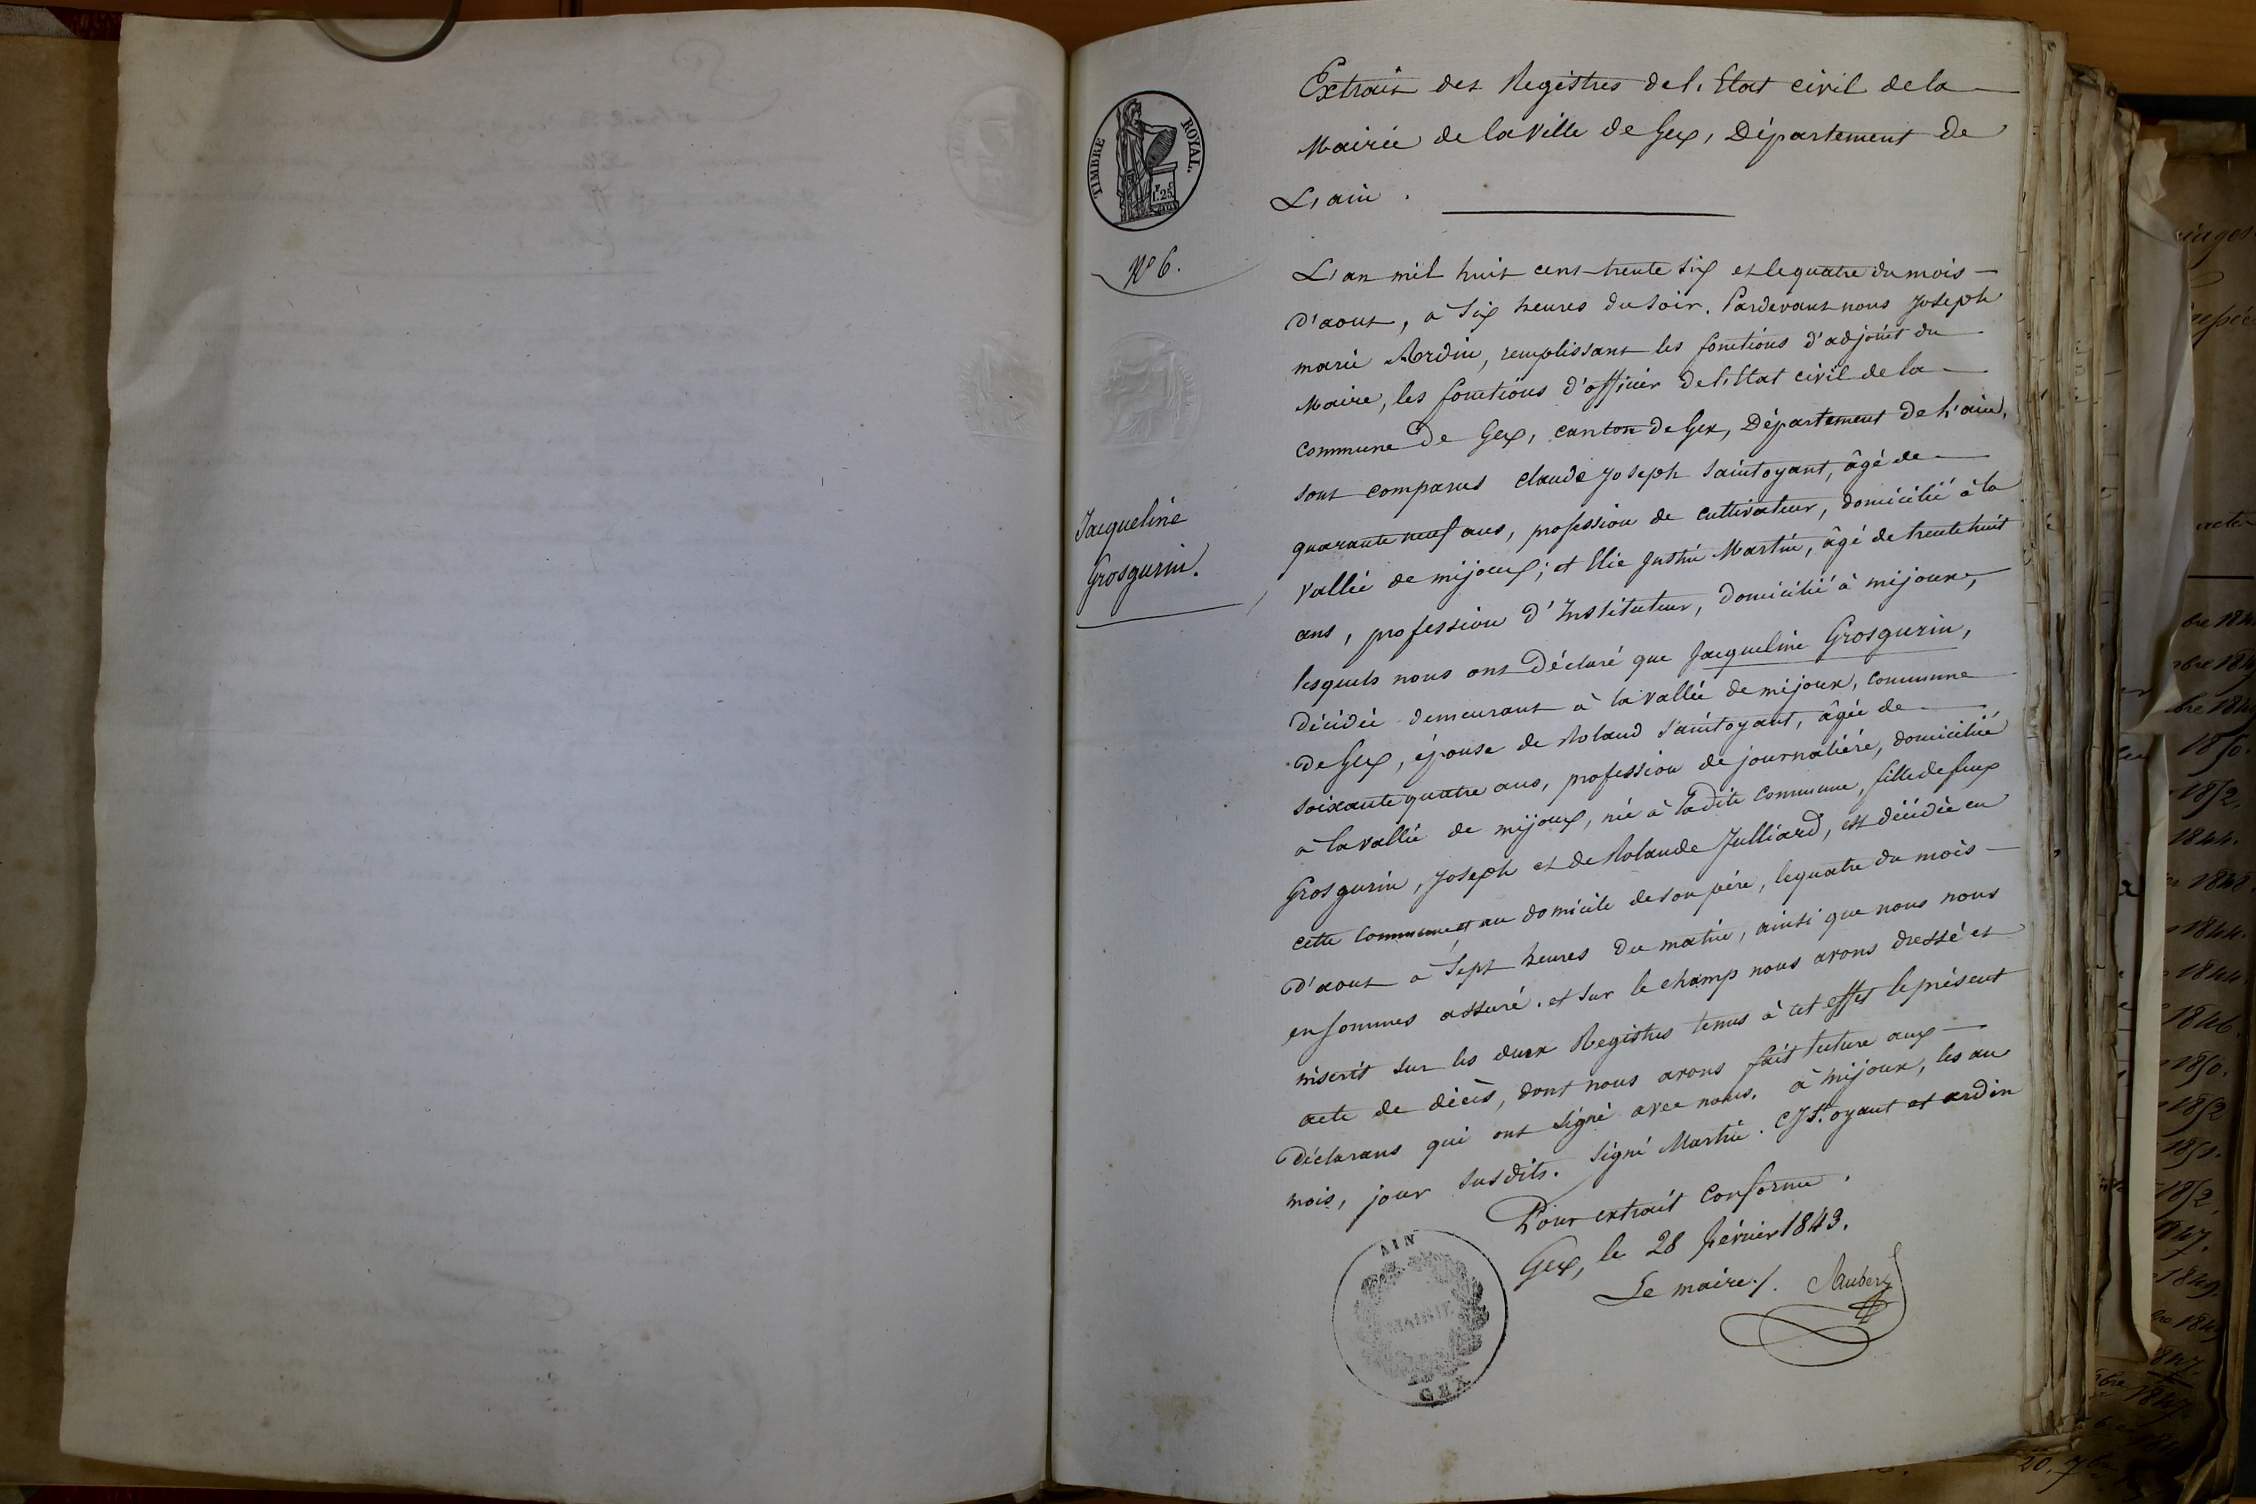 Extrait des Registres de l'Etat civil de la
Mairie de la Ville de Gex, Département de
L'ain.
TIMBRE ROYAL.
1.25
N° 6.
Jacqueline
Grosgurin.
L'an mil huit cent trente six et le quatre du mois
d'aout, à six heures du soir. Pardevant nous Joseph
marie Ardin, remplissant les fonctions d'adjoint du
Maire, les fonctions d'officier de l'Etat civil de la
commune de Gex, canton de Gex, Département de L'ain,
sont comparus claude Joseph Saintoyant, âgé de
quarante neuf ans, profession de cultivateur, domicilié à la
vallée de mijoux; et Elie Justin Martin, âgé de trente huit
ans, profession d'Instituteur, domicilié à mijoux,
lesquels nous ont Déclaré que Jacqueline Grosgurin,
décédée demeurant à la vallée de mijoux, commune
de Gex, épouse de Roland Saintoyant, âgée de
soixante quatre ans, profession de journalière, domiciliée
a la vallée de mijoux, née à Ladite commune, fille de feux
Grosgurin, Joseph et de Rolande Julliard, est décédée en
cette commune et au domicile de son père, le quatre du mois
d'aout à sept heures du matin, ainsi que nous nous
en sommes assuré. et sur le champ nous avons dressé et
inscrit sur les deux Registres tenus à cet effet le présent
acte de décès, dont nous avons fait lecture aux
Déclarans qui ont signé avec nous. à mijoux, les an
mois, jour susdits. Signé Martin. CJ St. oyant et ardin
Pour extrait conforme.
Gex, le 28 février 1843.
Le maire.
AIN
MAIRIE
GEX